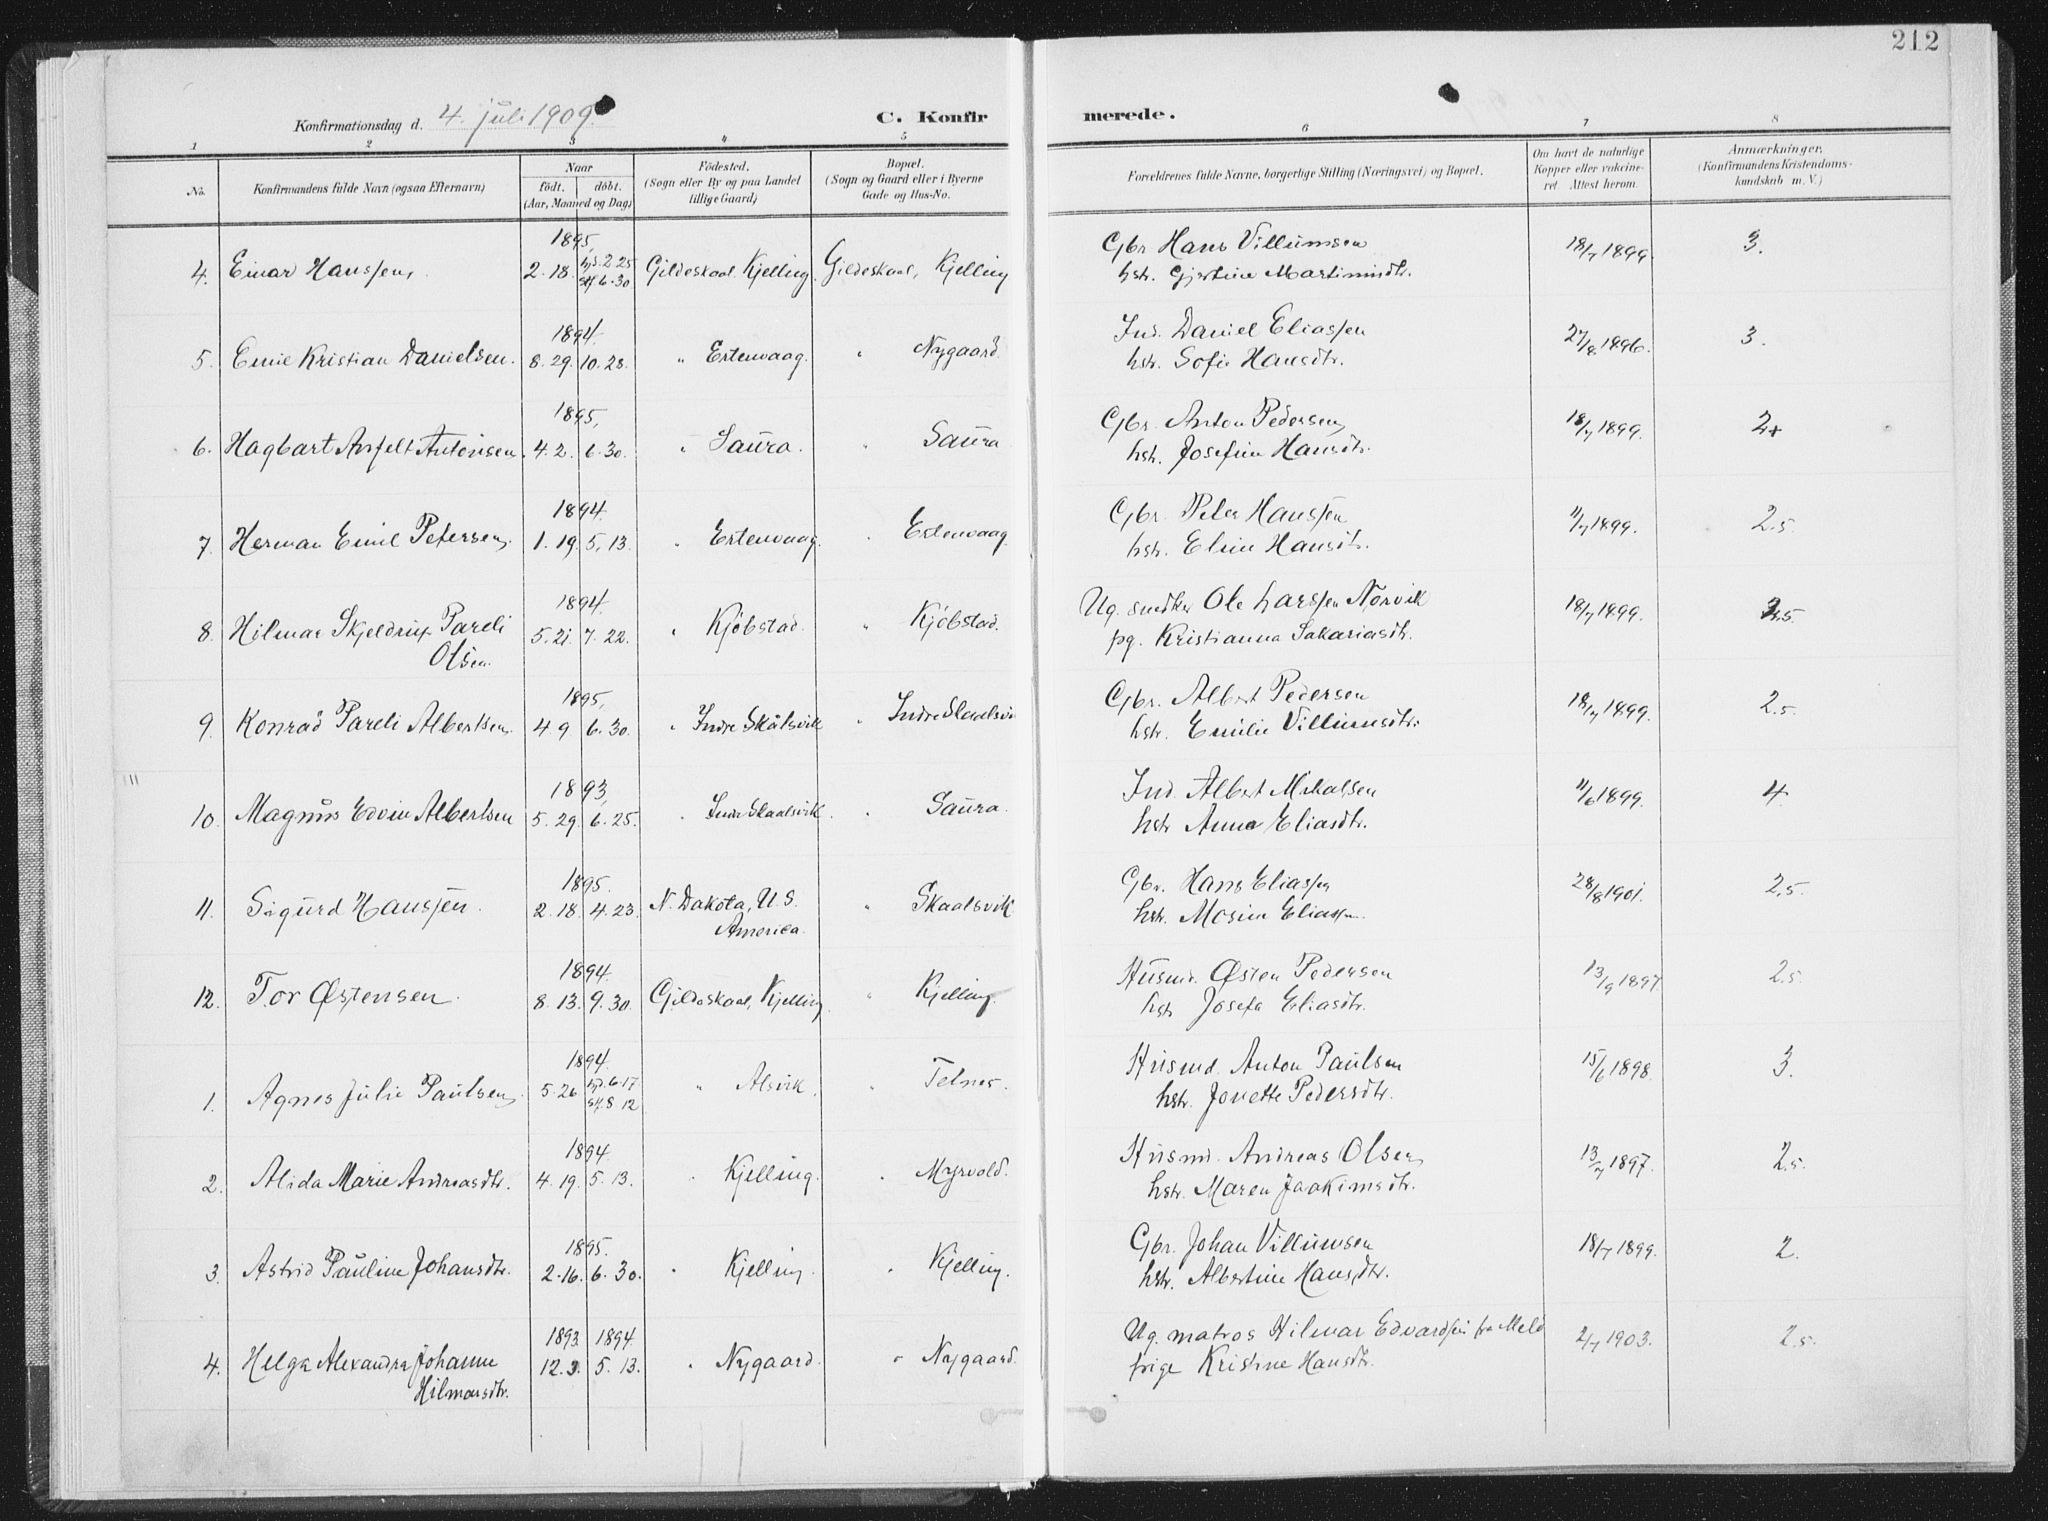 212
Konfirmationsdag d. 4. juli 1909.
C. Konfirmerede.
1 2 3 4 5 6 7 8
No.
Konfirmandens fulde Navn (ogsaa Efternavn)
Naar
födt. döbt.
(Aar, Maaned og Dag)
Födested.
(Sogn eller By og paa Landet
tillige Gaard)
Bopæl.
(Sogn og Gaard eller i Byerne
Gade og Hus-No.
Forældrenes fulde Navne, borgerlige Stilling (Næringsvei) og Bopæl.
Om havt de naturlige
Kopper eller vakcine-
ret Attest herom.
Anmærkninger,
(Konfirmandens Kristendoms-
kundskab m. V.)
1895, Gbr. Hans Villumsen
4. Einar Hanssen, 2.18. hjd. 2.25 Gildeskaal Kjelling. Gildeskaal, Kjelling 18/7 1899. 3.
stf 6.30 hstr. Gjertine Martinusdtr.
1894. Ind. Daniel Eliassen
5. Emil Kristian Danielsen. 8.29. 10.28. " Estenvaag. " Nygaard. 27/8 1896. 3.
hstr. Sofie Hansdtr.
1895, Gbr. Anton Pedersen
6. Hagbart Anfelt Antonsen. 4.2. 6.30. " Saura. " Saura 18/7 1899. 2+
hstr. Josefine Hansdtr.
1894. Gbr. Peter Hanssen
7. Herman Emil Petersen. 1.19. 5.13. " Estenvaag. " Estenvaag 11/7 1899. 2.5.
hstr. Eline Hansdtr.
1894. Ug. snedker Ole Larssen Norvik
8. Hilmar Skjeldrup Pareli 5.21. 7.22. " Kjöbstad. " Kjöbstad. 18/7 1899. 5.
Olsen. pg. Kristianna Sakariasdtr.
1895, Gbr. Albert Pedersen
9. Konrad Pareli Albertsen. 4 9 6.30. " Indre Skålsvik " Indre Skaalsvi 18/7 1899. 2.5.
hstr. Emilie Villumsdtr.
1893, Ind. Albert Mikalsen
10. Magnus Edvin Albertsen 5.29. 6.25. " Indr Skaalsvik. " Saura. 11/6 1899. 4.
hstr. Anna Eliasdtr.
1895. Gbr. Hans Eliassen
11. Sigurd Hanssen. 2.18. 4.23. N. Dakota, U.S. " Skaalsvik 28/8 1901. 2.5.
America. hstr. Mosine Eliassen.
1894. Husmd. Østen Pedersen
12. Tor Østensen. 8.13. 9.30. Gildeskaal, Kjelling. " Kjelling. 13/9 1897 2.5.
hstr Josefa Eliasdtr.
1894. Husmd. Anton Paulsen
1. Agnes Julie Paulsen, 5.26 hjd. 6.17 " Alsvik. " Telnes. 15/6 1898. 3.
stf. 8 12 hstr. Jonette Pedersdtr.
1894. Husmd. Andreas Olsen
2. Alida Marie Andreasdtr. 4.19. 5.13. " Kjelling. " Myrvold. 13/7 1897. 2.5.
hstr. Maren Jaakimsdtr.
1895. Gbr. Johan Villumsen
3. Astrid Pauline Johansdtr. 2.16. 6.30. " Kjelling. " Kjelling. 18/7 1899. 2.
hstr. Albertine Hansdtr.
1893. 1894. Ug. matros Hilmar Edvardsen fra Melø
4. Helga Alexandra Johanne 12.3. 5.13. " Nygaard. " Nygaard. 2/7 1903. 2.5.
Hilmarsdtr. pige Kristine Hansdtr.